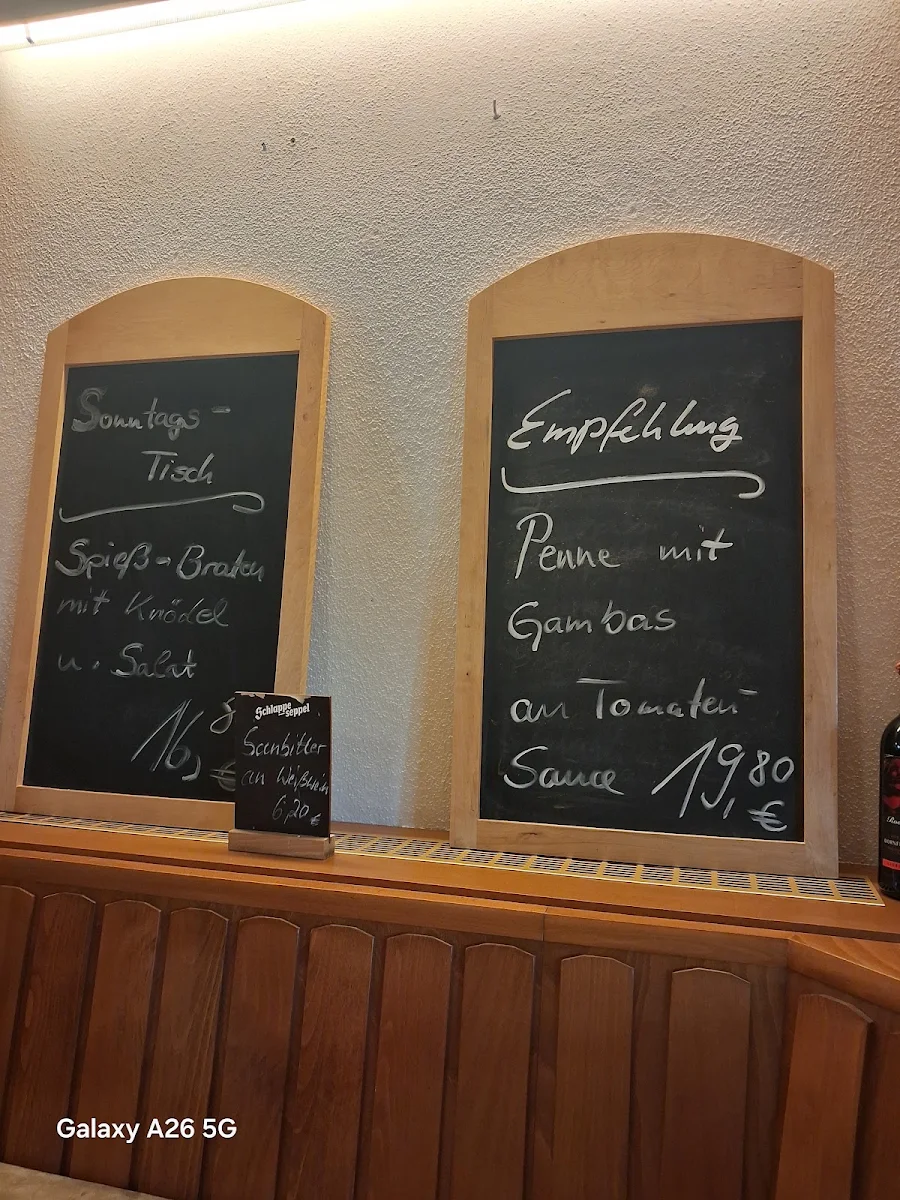 Sonntags-
Tisch
Spieß-Braten
mit Knödel
u. Salat
16,
€
Schlappe
seppel
Sanbitter
an Weißwein
6,20 €
Empfehlung
Penne mit
Gambas
an Tomaten-
Sauce 19,80
€
Galaxy A26 5G